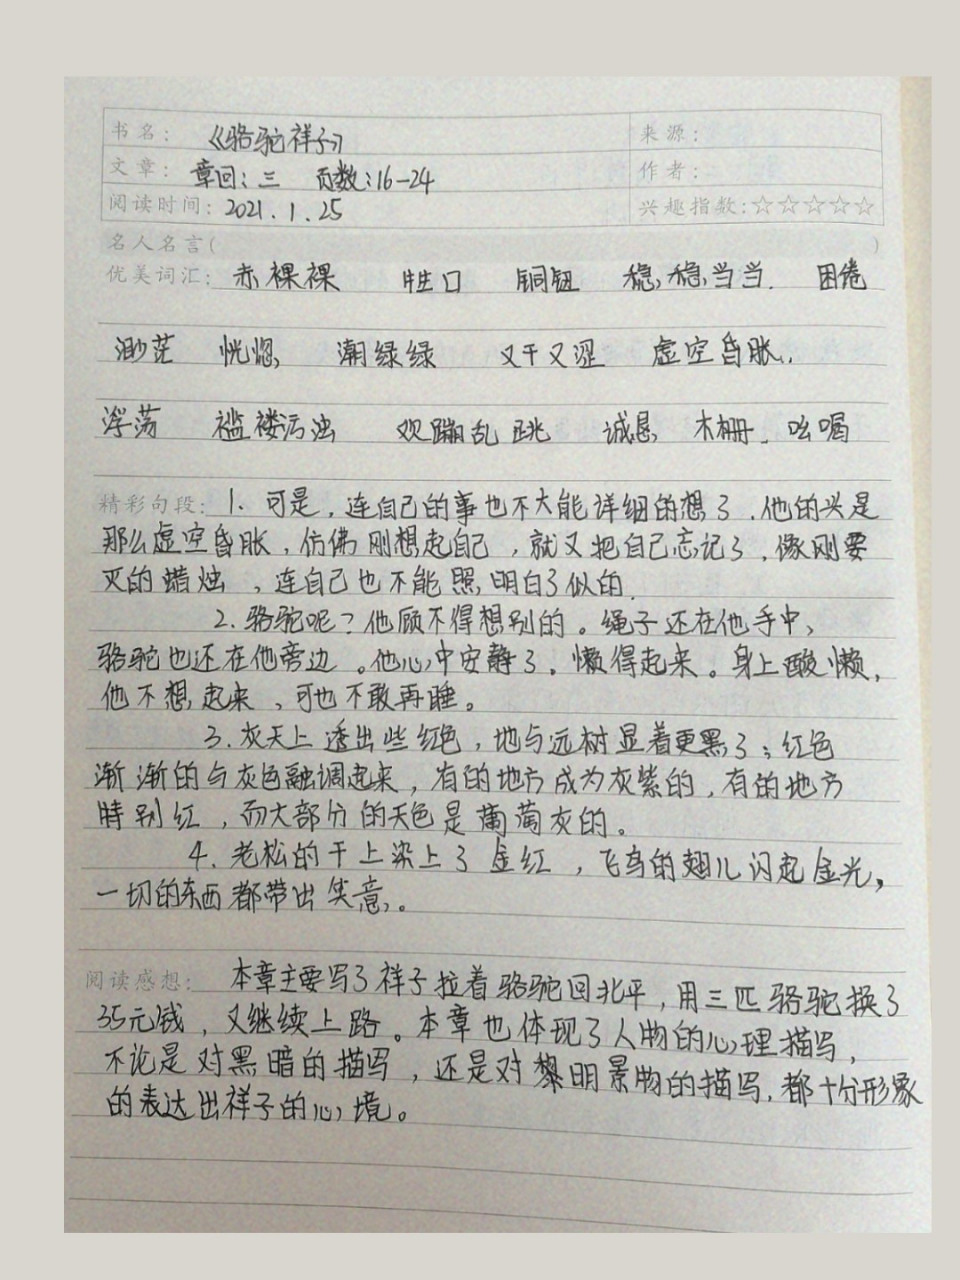 书名： 《骆驼祥子》 来源：
文章： 章回：三 页数：16-24 作者：
阅读时间：2021.1.25 兴趣指数：☆☆☆☆☆
名人名言( )
优美词汇： 赤裸裸 牲口 铜钮 稳稳当当 困倦
渺茫 恍惚 潮绿绿 又干又涩 虚空昏胀
浮荡 褴褛污浊 欢蹦乱跳 诚恳 木栅 吆喝
精彩句段：1. 可是，连自己的事也不大能详细的想了，他的头是
那么虚空昏胀，仿佛刚想起自己，就又把自己忘记了，像刚要
灭的蜡烛，连自己也不能照明白了似的.
2.骆驼呢？他顾不得想别的。绳子还在他手中，
骆驼也还在他旁边。他心中安静了。懒得起来。身上酸懒，
他不想起来，可也不敢再睡。
3.灰天上透出些红色，地与远树显着更黑了；红色
渐渐的与灰色融调起来，有的地方成为灰紫的，有的地方
特别红，而大部分的天色是葡萄灰的。
4.老松的干上染上了金红，飞鸟的翅儿闪起金光，
一切的东西都带出笑意。
阅读感想： 本章主要写了祥子拉着骆驼回北平，用三匹骆驼换了
35元钱，又继续上路。本章也体现了人物的心理描写，
不论是对黑暗的描写，还是对黎明景物的描写，都十分形象
的表达出祥子的心境。